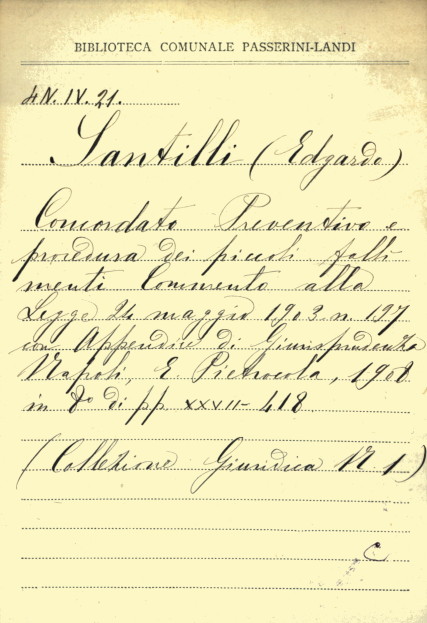 BIBLIOTECA COMUNALE PASSERINI-LANDI
4 N. IV. 21.
Santilli (Edgardo)
Concordato Preventivo e
procedura dei piccoli falli-
menti Commento alla
Legge 24 maggio 1903 n. 197
con Appendice di Giurisprudenza
Napoli, E. Pietrocola, 1908
in 8° di pp XXVII-418
(Collezione Giuridica N 1)
C